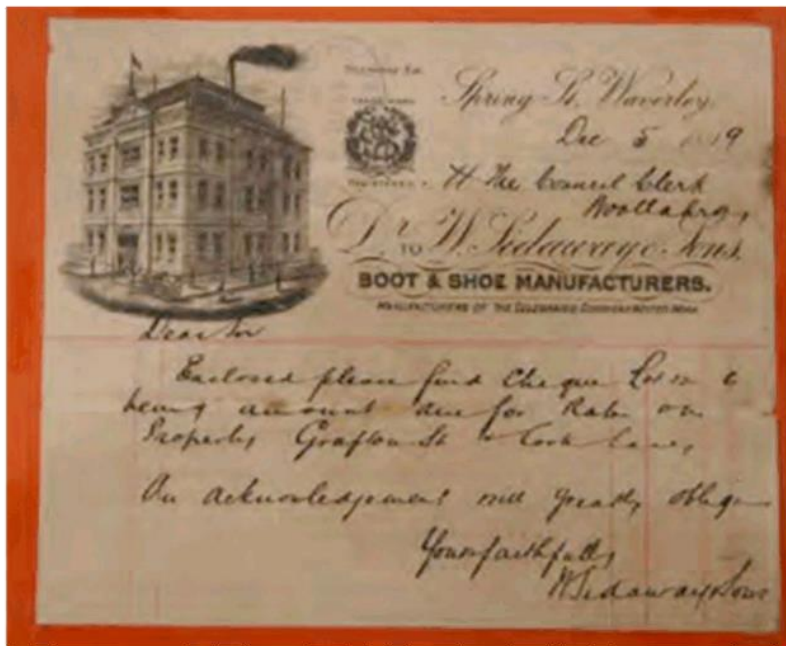 TELEPHONE
TRADE MARK
Spring St. Waverley.
Dec 5
The Council Clerk
Woollahra,
Dr. TO W. Sidaway & Sons.
BOOT & SHOE MANUFACTURERS.
MANUFACTURERS OF THE CELEBRATED
Dear Sir
Enclosed please find Cheque
being amount due for Rates on
Property Grafton St & Cork Lane,
An acknowledgement will greatly oblige
Yours faithfully
W Sidaway & Sons